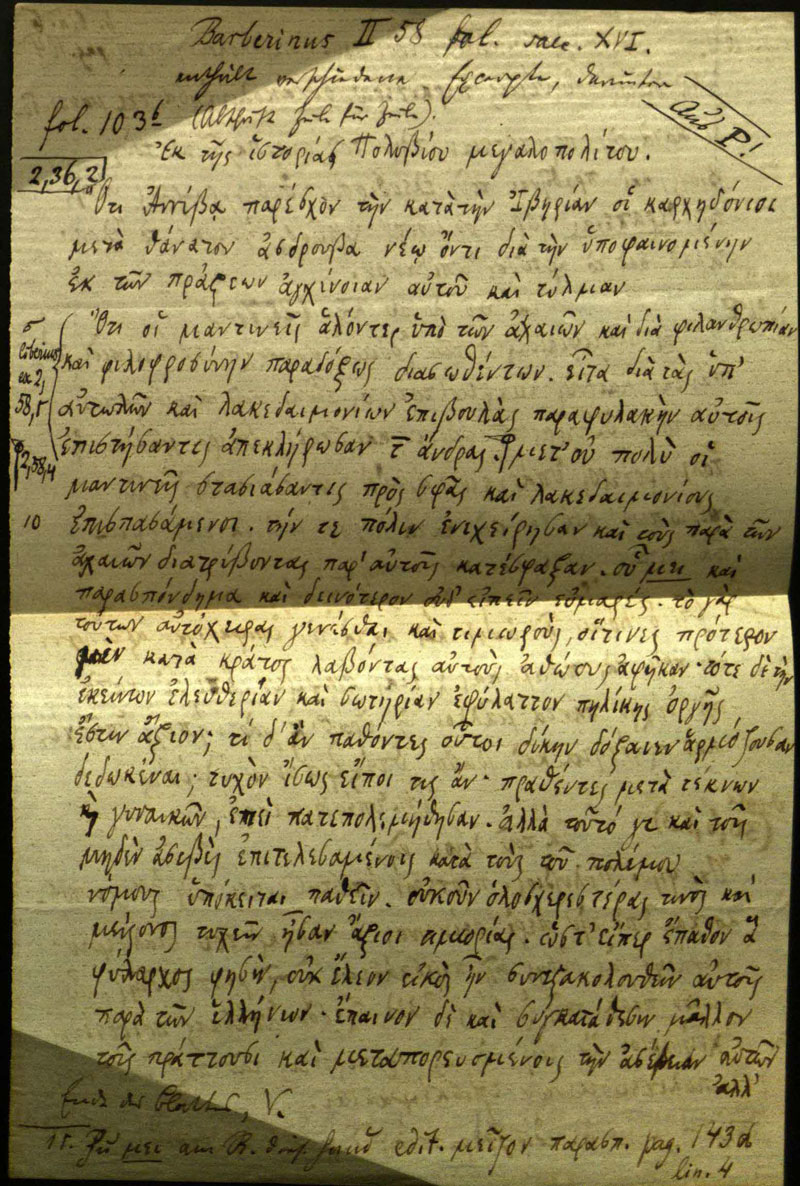 Barberinus II 58 fol. saec. XVI.
enthält verschiedene Excerpte, darunter
fol. 103b (Abschrift Zeile für Zeile).
Aus P!
Ἐκ τῆς ἱστορίας Πολυβίου μεγαλοπολίτου.
2,36,2
Ὅτι Ἀννίβᾳ παρέσχον τὴν κατὰ τὴν Ἰβηρίαν οἱ καρχηδόνιοι
μετὰ θάνατον ἀσδρούβα νέῳ ὄντι διὰ τὴν ὑποφαινομένην
ἐκ τῶν πράξεων ἀγχίνοιαν αὐτοῦ καὶ τόλμαν
Ὅτι οἱ μαντινεῖς ἁλόντες ὑπὸ τῶν ἀχαιῶν καὶ διὰ φιλανθρωπίαν
καὶ φιλοφροσύνην παραδόξως διασωθέντων. εἶτα διὰ τὰς ὑπ'
58,
αὐτωλῶν καὶ λακεδαιμονίων ἐπιβουλὰς παραφυλακὴν αὐτοῖς
2,58,4
ἐπιστήσαντες ἀπεκλήρωσαν τ̅ ἄνδρας. μετ' οὐ πολὺ οἱ
μαντινεῖς στασιάσαντες πρὸς σφᾶς καὶ λακεδαιμονίους
10 ἐπισπασάμενοι. τήν τε πόλιν ἐνεχείρησαν καὶ τοὺς παρὰ τῶν
ἀχαιῶν διατρίβοντας παρ' αὐτοῖς κατέσφαξαν. οὗ μει καὶ
παρασπόνδημα καὶ δεινότερον οὐδ' εἰπεῖν εὐμαρές. τὸ γὰρ
τούτων αὐτόχειρας γενέσθαι καὶ τιμωροὺς, οἵτινες πρότερον
μὲν κατὰ κράτος λαβόντας αὐτοὺς ἀθώους ἀφῆκαν. τότε δὲ τὴν
ἐκείνων ἐλευθερίαν καὶ σωτηρίαν ἐφύλαττον πηλίκης ὀργῆς
ἔστιν ἄξιον; τί δ' ἂν παθόντες οὗτοι δίκην δόξαιεν ἁρμόζουσαν
δεδωκέναι; τυχὸν ἴσως εἴποι τις ἄν. πραθέντες μετὰ τέκνων
κ̀ γυναικῶν, ἐπεὶ κατεπολεμήθησαν. ἀλλὰ τοῦτό γε καὶ τοῖς
μηδὲν ἀσεβὲς ἐπιτελεσαμένοις κατὰ τοὺς τοῦ πολέμου
νόμους ὑπόκειται παθεῖν. οὐκοῦν ὁλοσχερεστέρας τινὸς καὶ
μείζονος τυχεῖν ἦσαν ἄξιοι τιμωρίας. ὥστ' εἴπερ ἔπαθον ἃ
φύλαρχος φησὶν, οὐκ ἔλεον εἰκὸς ἦν συνεξακολουθεῖν αὐτοῖς
παρὰ τῶν ἑλλήνων. ἔπαινον δὲ καὶ συγκατάθεσιν μᾶλλον
τοῖς πράττουσι καὶ μεταπορευομένοις τὴν ἀσέβειαν αὐτῶν
ἀλλ'
Ende des Blattes, V.
11. Zu μει am R. edit. μεῖζον παρασπ. pag. 143d
lin. 4